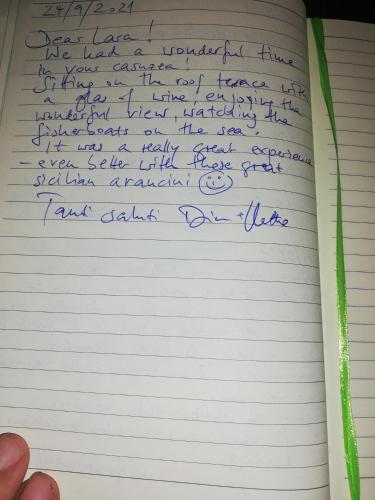 24/9/2021
Dear Lara!
We had a wonderful time
in your casuzza!
Sitting on the roof terrace with
a glas of wine, enjoying the
wunderful view, watching the
fisherboats on the sea.
It was a really great experience
– even better with these great
sicilian arancini ☺
Tanti saluti Dim +